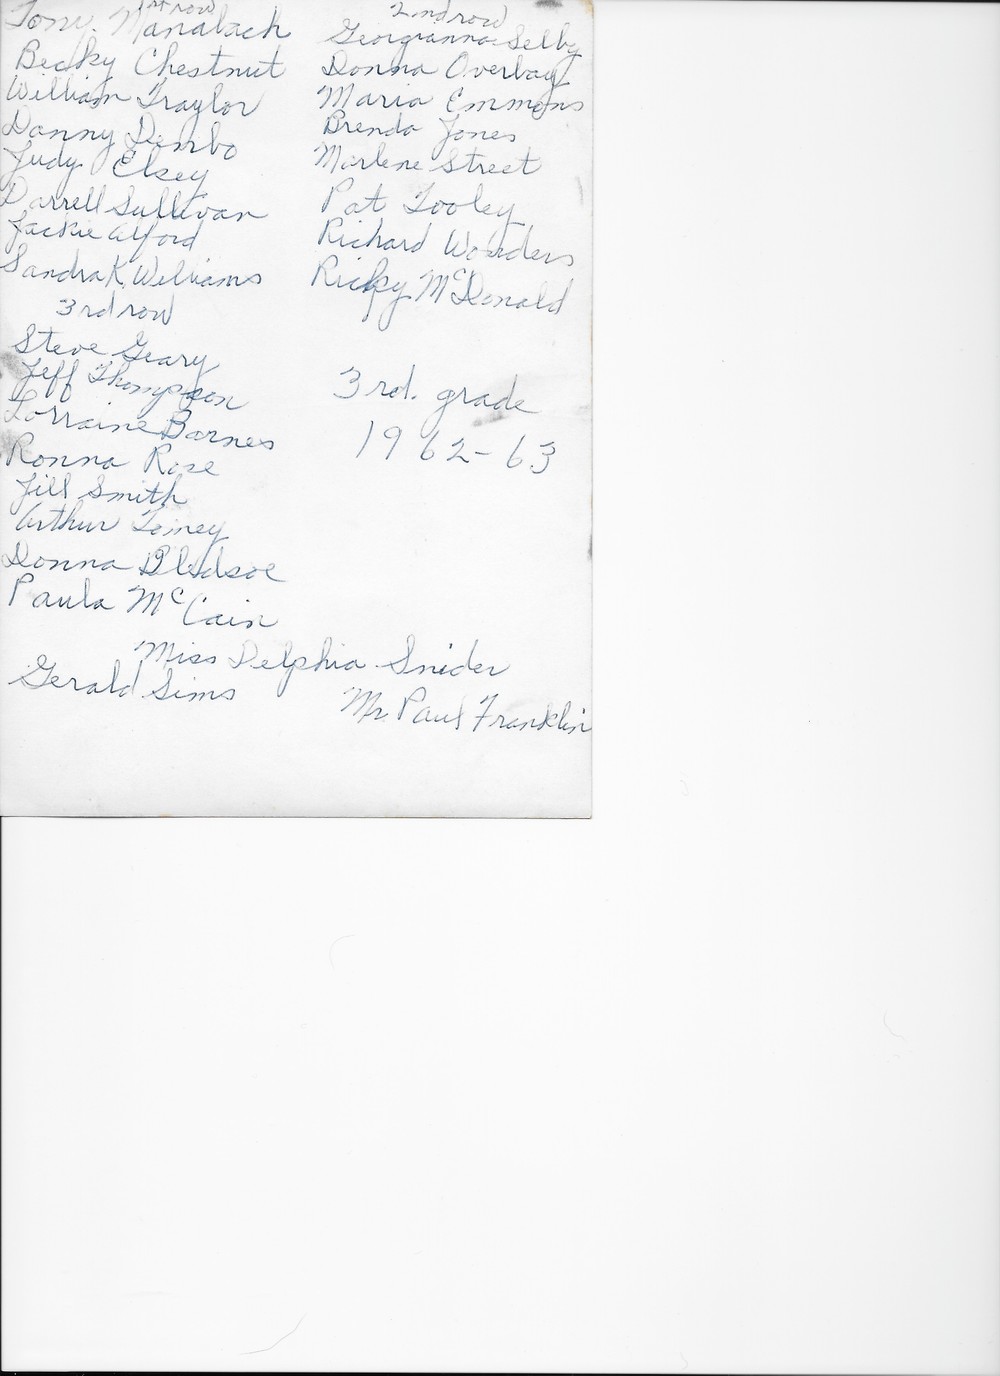 1st row
Tony Manabach
Becky Chestnut
William Traylor
Danny Dembo
Judy Elsey
Darrell Sullivan
Jackie Alford
Sandra K. Williams
2nd row
Georgianna Selby
Donna Overbay
Maria Emmons
Brenda Jones
Marlene Street
Pat Tooley
Richard Wonders
Ricky McDonald
3rd row
Steve Geary
Jeff Thompson
Lorraine Barnes
Ronna Rose
Jill Smith
Arthur
Donna Bledsoe
Paula McCain
3rd. grade
1962-63
Miss Delphia Snider
Gerald Sims
Mr. Paul Franklin